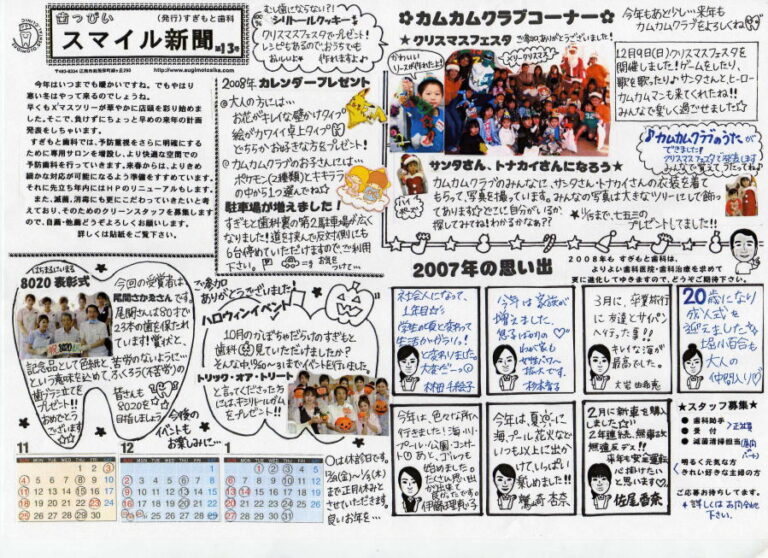 歯っぴぃ
(発行)すぎもと歯科
スマイル新聞 第13号
http://www.sugimotosika.com
今年はいつまでも暖かいですね。でもやはり
寒い冬はやって来るのでしょうね。
早くもX'マスツリーが華やかに店頭を彩り始めま
した。そこで、負けずにちょっと早めの来年の計画
発表をしちゃいます。
すぎもと歯科では、予防重視をさらに明確にする
ために専用サロンを増設し、より快適な空間での
予防歯科を行っていきます。来春からは、よりきめ
細かな対応が可能になるよう準備をすすめています。
それに先立ち年内にはHPのリニューアルもします。
また、滅菌、消毒にも更にこだわっていきたいと考
えており、そのためのクリーンスタッフを募集しますの
で、自薦・他薦どうぞよろしくお願いします。
詳しくは貼紙をご覧下さい。
むし歯にならない?!
シリトールクッキー
クリスマスフェスタでプレゼント!
レシピもあるので、おうちでも
作れますよ♪
2008年 カレンダープレゼント
@大人の方には…
お花がキレイな壁かけタイプ
絵がカワイイ卓上タイプ
どちらかお好きな方をプレゼント!
@カムカムクラブのお子さんには…
ポケモン(2種類)とキキララ
の中から1つ選んでね☆
駐車場が増えました!
すぎもと歯科裏の第2駐車場が広く
なりました!道を挟んで反対側にも
6台停めていただけますので、ご利用
下さい。
お気を
つけて…
✿カムカムクラブコーナー✿
★クリスマスフェスタ ご参加ありがとうございました!
かわいい
リースが作れたよ
メリークリスマス!
今年もあと少し…来年も
カムカムクラブをよろしくね
12月9日(日)クリスマスフェスタを
開催しました!ゲームをしたり、
歌を歌ったり♪サンタさんと、ヒーロー
カムカムマンも来てくれたね!!
みんなで楽しく過ごせました☆
♪カムカムクラブのうたが
できました!
クリスマスフェスタで発表します
みんなで覚えてうたってね♪
サンタさん、トナカイさんになろう★
カムカムクラブのみんなに、サンタさん・トナカイさんの衣装を着て
もらって、写真を撮っています。みんなの写真は大きなツリーにして飾っ
てあります☆どこに自分がいるか
探してみてね!わかるかなぁ??
11/15まで、七五三の
プレゼントしてました!!
2007年の思い出
2008年も すぎもと歯科は、
よりよい歯科医院・歯科治療を求めて
更に進化してゆきますので、どうぞご期待下さい。
はちまるにいまる
8020 表彰式
今回の受賞者は
尾関さかゑさんです。
尾関さんは80才で
23本の歯を保たれて
います!賞状と、
記念品として色紙と、苦労のないように…
という意味をこめて、ふくろう(不苦労)の
歯ブラシ立てを
プレゼント!!
おめでとう
ございます☆
皆さんも
8020を
目指しましょう
ご参加
ありがとうございました!
ハロウィンイベント
10月のかぼちゃだらけのすぎもと
歯科 見ていただけましたか?
そんな中!10/20~31までイベントを行いました。
トリック・オア・トリート!
と言ってくださった方
には、キシリトールガム
をプレゼント!!
今後の
イベントも
お楽しみに…
社会人になって、
1年目☆
学生の頃と変わって
生活がガラリ!
と変わりました。
大変だ~っ
今年は家族が
増えました。
わが家も
女性パワー
拡大です。
杉本杏子
3月に、卒業旅行
に友達とサイパン
へ行った事!!
キレイな海が
最高でした。
20歳になり
成人式を
迎えました
大人の
仲間入り♡
今年は、色々な所へ
行きました!海・川・
プール・山・公園・コンサート
あと、ゴルフも
始めました。
たくさん思い
出が出来て、
良かったです。
今年は、夏に
海、プール、花火など
いつも以上に出か
けて、いっぱい
楽しめました!!
2月に新車を購入
しました
2年連続、無事故
無違反デス!!
来年も安全運転
心掛けたい
と思います♡
佐尾香奈
★スタッフ募集★
● 歯科助手
● 受付
● 滅菌清掃担当
正社員
明るく元気な方
きれい好きな主婦の方
ご応募お待ちしてます。
★詳しくは お問合せ
下さい。
11
12
1
○は休診日です。
12/28(金)~1/3(木)
まで正月休みと
させていただきます。
良いお年を…